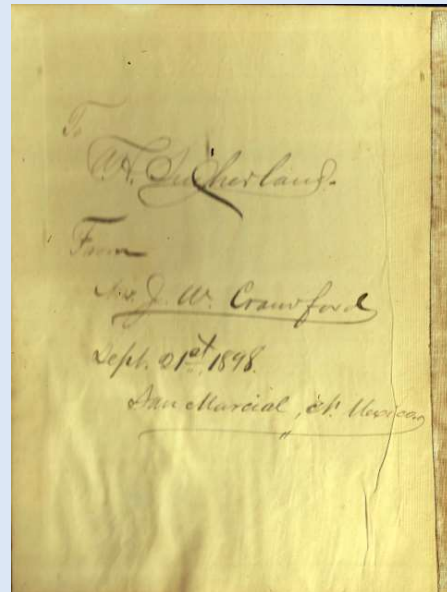 To
W. Sutherland.
From
J. W. Crawford
Sept. 21st, 1898.
San Marcial, N. Mexico